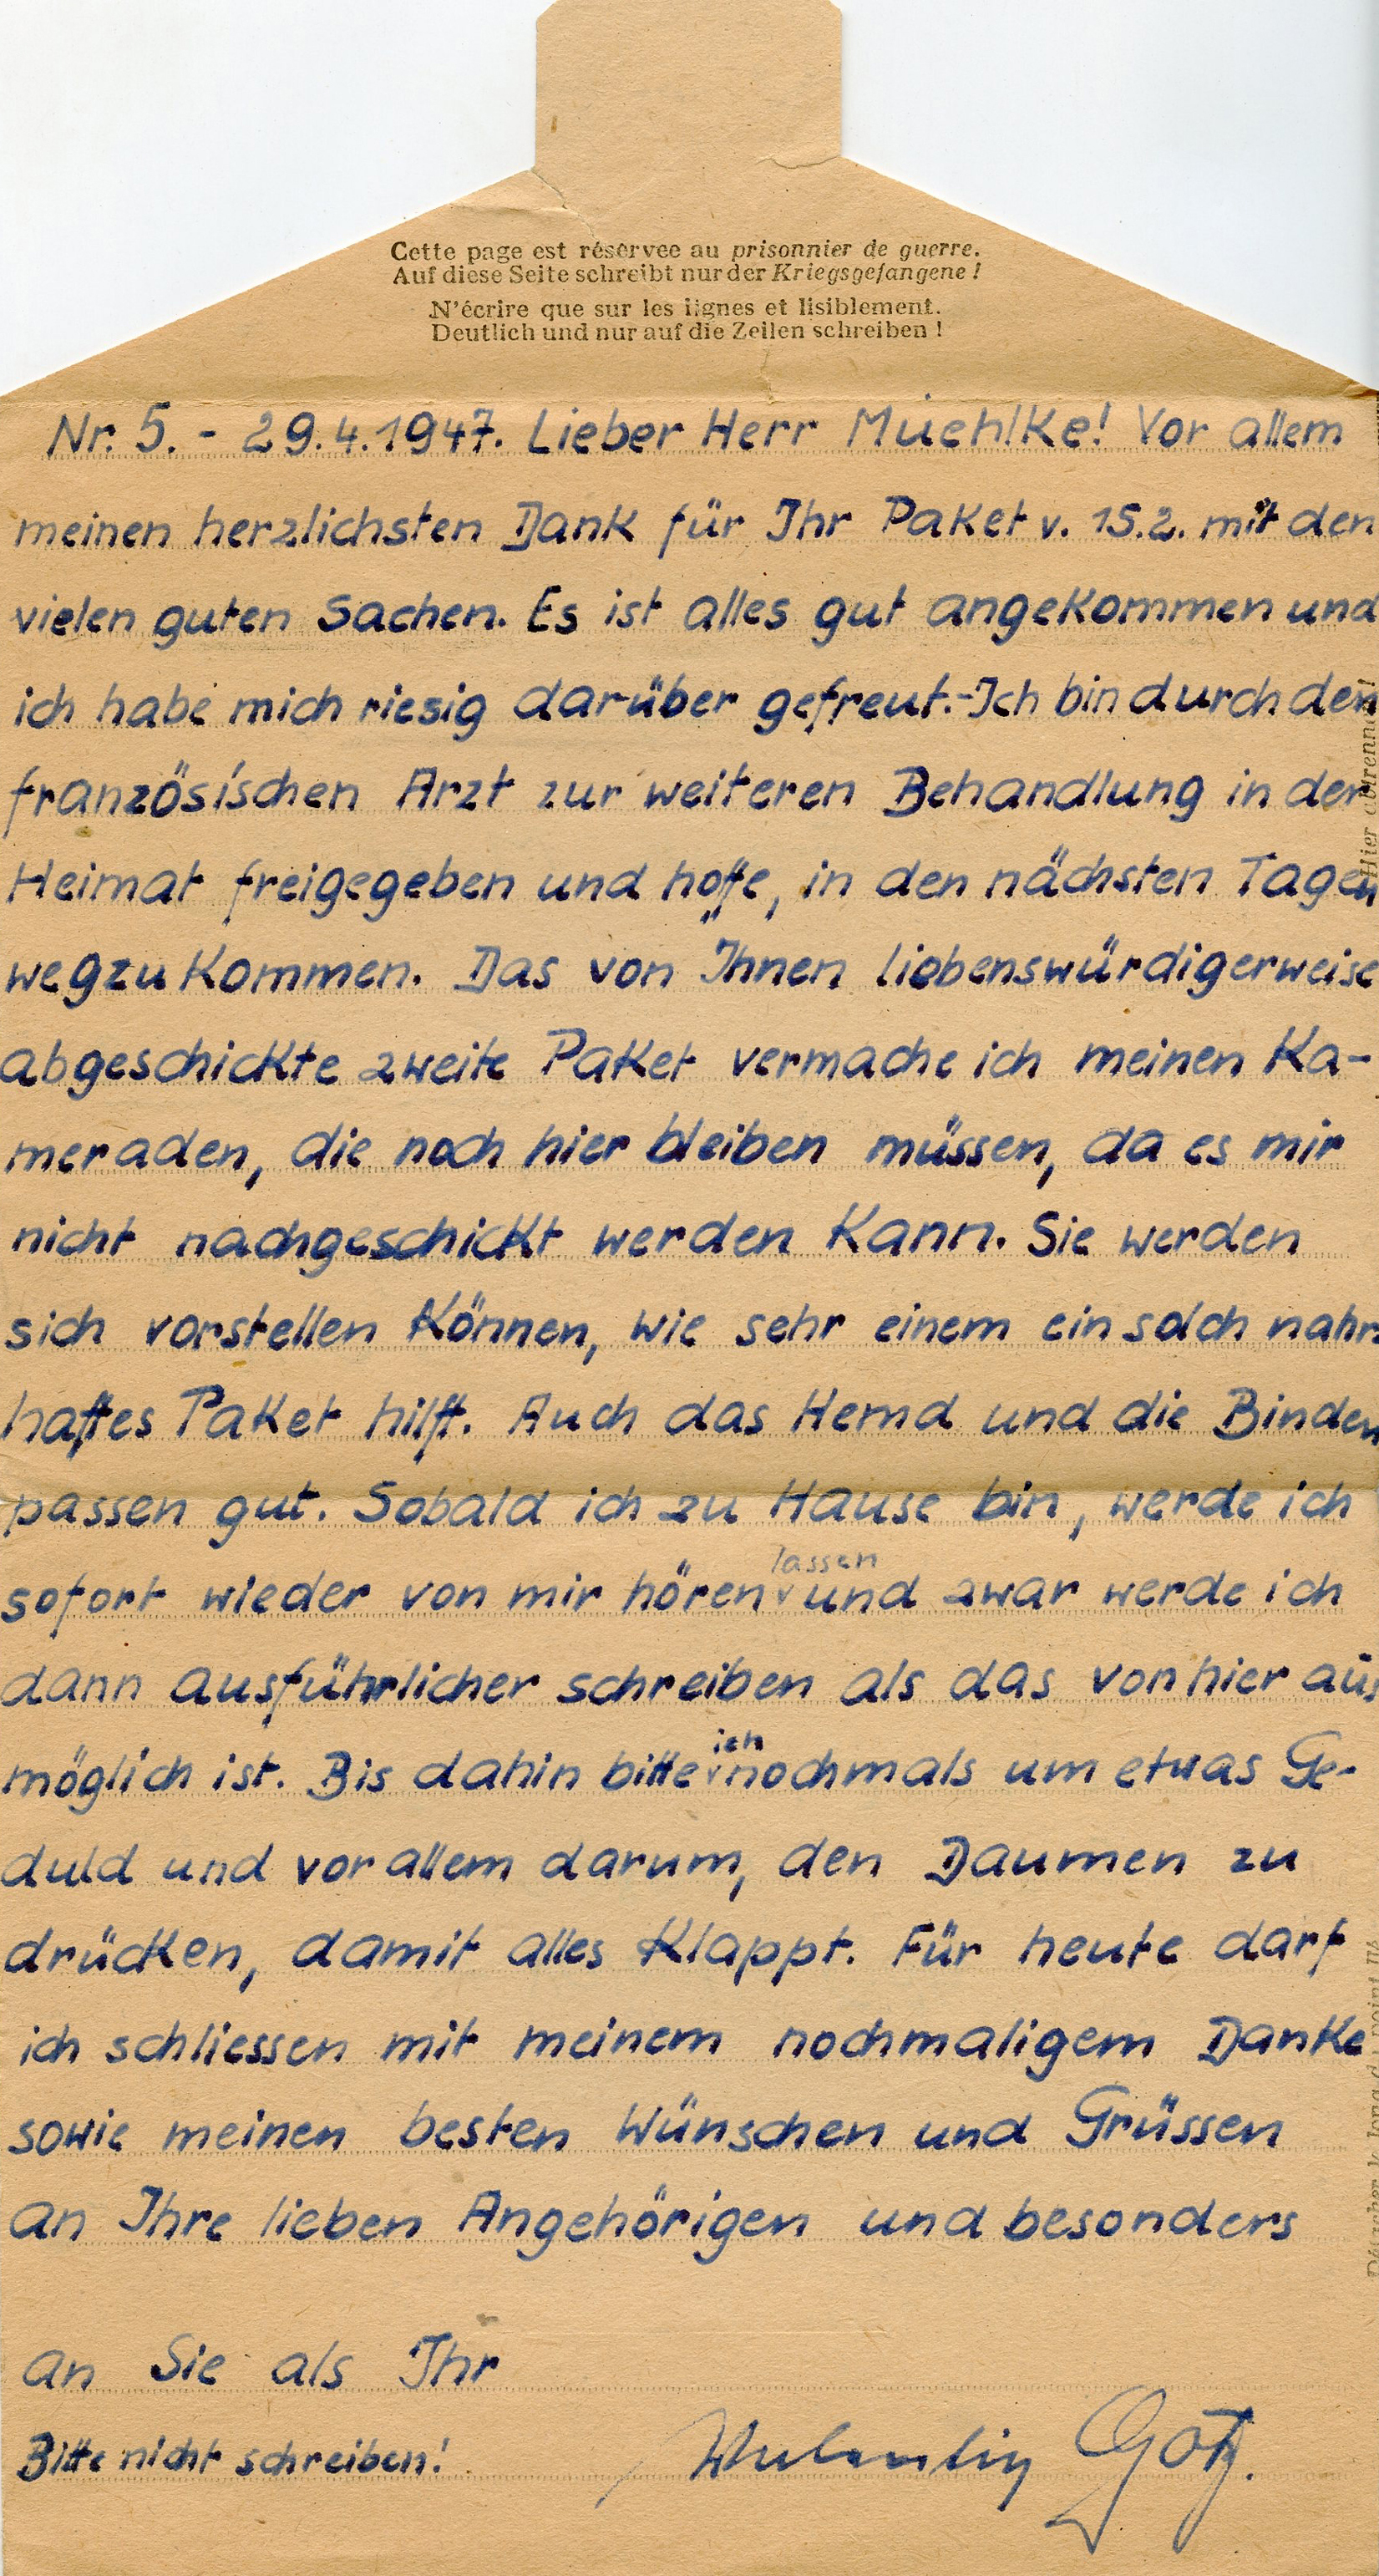 Cette page est réservee au prisonnier de guerre.
Auf diese Seite schreibt nur der Kriegsgefangene !
N'écrire que sur les lignes et lisiblement.
Deutlich und nur auf die Zeilen schreiben !
Nr. 5. - 29.4.1947. Lieber Herr Müehlke! Vor allem
meinen herzlichsten Dank für Ihr Paket v. 15.2. mit den
vielen guten Sachen. Es ist alles gut angekommen und
ich habe mich riesig darüber gefreut.- Ich bin durch den
französischen Arzt zur weiteren Behandlung in der
Heimat freigegeben und hoffe, in den nächsten Tagen
wegzukommen. Das von Ihnen liebenswürdigerweise
abgeschickte zweite Paket vermache ich meinen Ka-
meraden, die noch hier bleiben müssen, da es mir
nicht nachgeschickt werden kann. Sie werden
sich vorstellen können, wie sehr einem ein solch nahr-
haftes Paket hilft. Auch das Hemd und die Binden
passen gut. Sobald ich zu Hause bin, werde ich
sofort wieder von mir hören lassen und zwar werde ich
dann ausführlicher schreiben als das von hier aus
möglich ist. Bis dahin bitte ich nochmals um etwas Ge-
duld und vor allem darum, den Daumen zu
drücken, damit alles klappt. Für heute darf
ich schliessen mit meinem nochmaligem Danke
sowie meinen besten Wünschen und Grüssen
an Ihre lieben Angehörigen und besonders
an Sie als Ihr
Bitte nicht schreiben!
Götz.
Hier abtrennen!